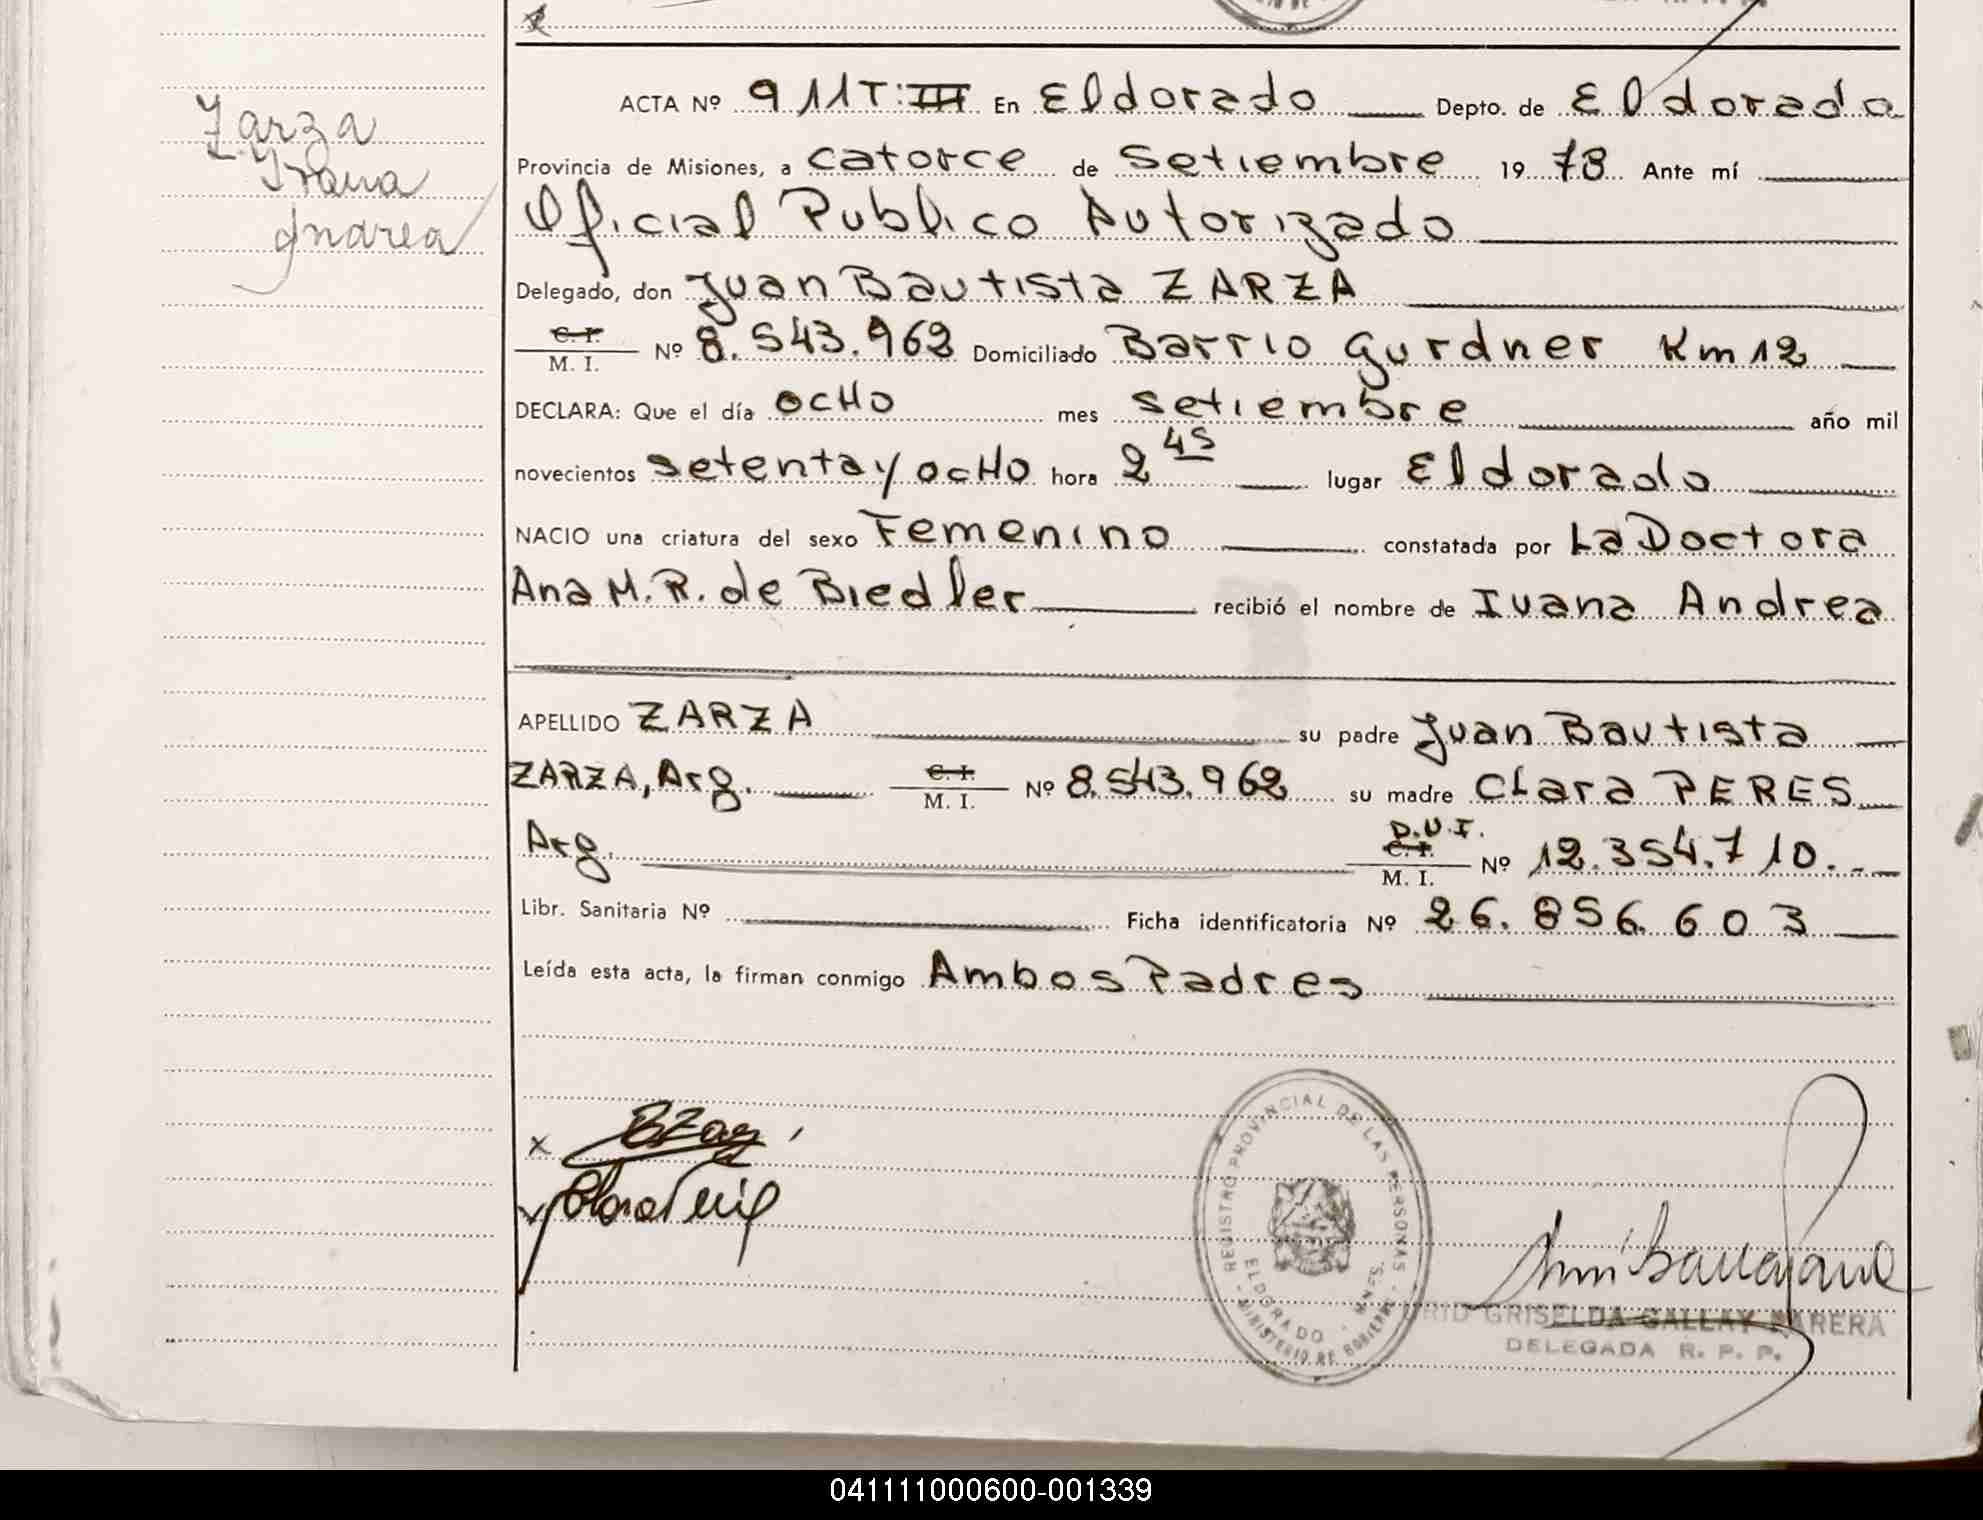 Zarza
Ivana
Andrea
ACTA Nº 911T:III En Eldorado Depto. de Eldorado
Provincia de Misiones, a catorce de Setiembre 19 78 Ante mí
Oficial Publico Autorizado
Delegado, don Juan Bautista ZARZA
C. I.
M. I. Nº 8.543.962 Domiciliado Barrio Gurdner Km 12
DECLARA: Que el día ocHo mes setiembre año mil
novecientos setenta y ocHo hora 2 45 lugar Eldorado
NACIO una criatura del sexo Femenino constatada por La Doctora
Ana M. R. de Biedler recibió el nombre de Ivana Andrea
APELLIDO ZARZA su padre Juan Bautista
ZARZA, Arg. C. I. M. I. Nº 8.543.962 su madre CLara PERES
Arg. D.U.I. C. I. M. I. Nº 12.354.710.
Libr. Sanitaria Nº Ficha identificatoria Nº 26.856.603
Leída esta acta, la firman conmigo Ambos Padres
x
REGISTRO PROVINCIAL DE LAS PERSONAS
ELDORADO - MNES.
MINISTERIO DE GOBIERNO
GRISELDA GALLAY PARERA
DELEGADA R. P. P.
041111000600-001339